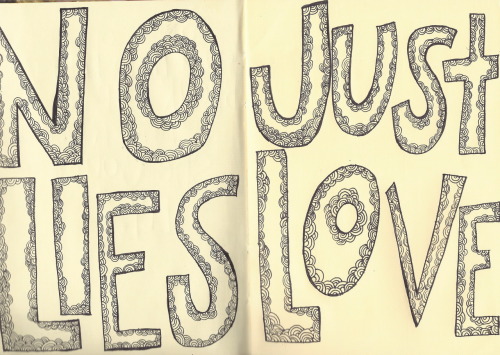 NO
LIES
JUST
LOVE